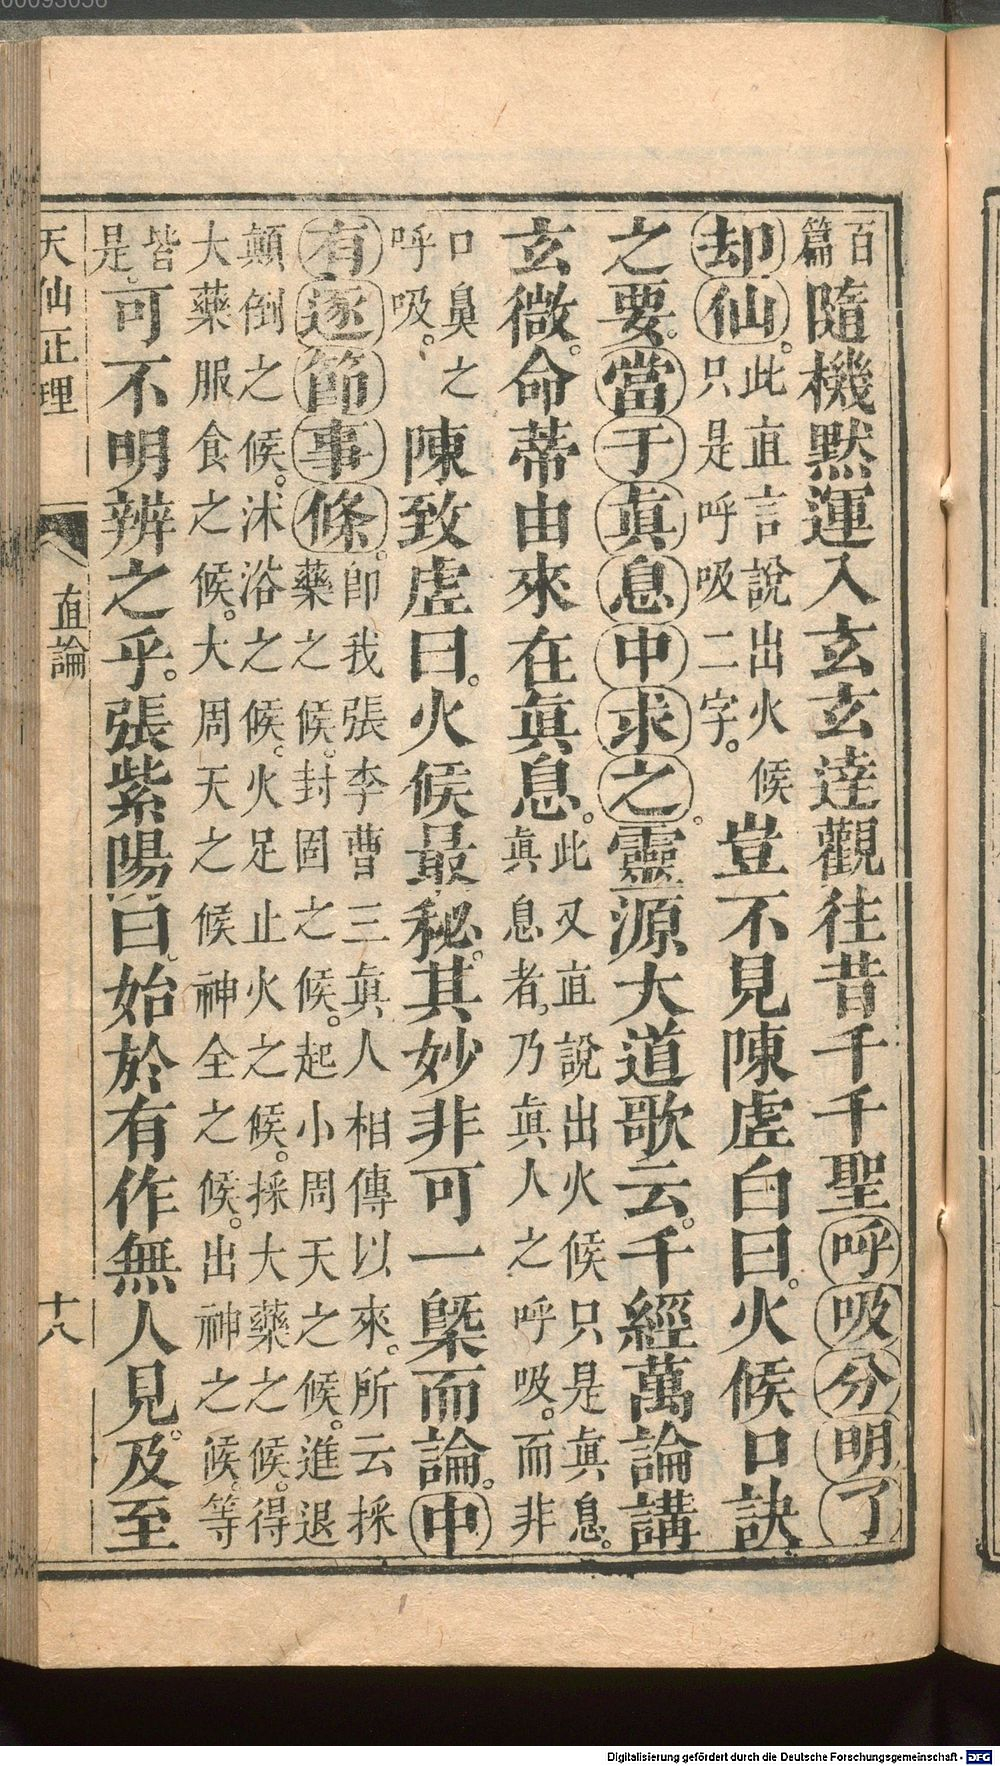 00093056
百
篇
隨機黙運入玄玄達觀往昔千千聖呼吸分明了
却仙。
此直言說出火候
只是呼吸二字。
豈不見陳虛白曰。火候口訣
之要。當于眞息中求之。靈源大道歌云。千經萬論講
玄微。命蒂由來在眞息。
此又直說出火候只是眞息。
眞息者,乃眞人之呼吸。而非
口鼻之
呼吸。
陳致虛曰。火候最秘。其妙非可一槩而論。中
有逐節事條。
卽我張李曹三眞人相傳以來。所云採
藥之候。封固之候。起小周天之候。進退
顛倒之候。沐浴之候。火足止火之候。採大藥之候。得
大藥服食之候。大周天之候神全之候。出神之候。等
皆
是。
可不明辨之乎。張紫陽曰。始於有作無人見。及至
天仙正理
直論
十八
Digitalisierung gefördert durch die Deutsche Forschungsgemeinschaft - DFG